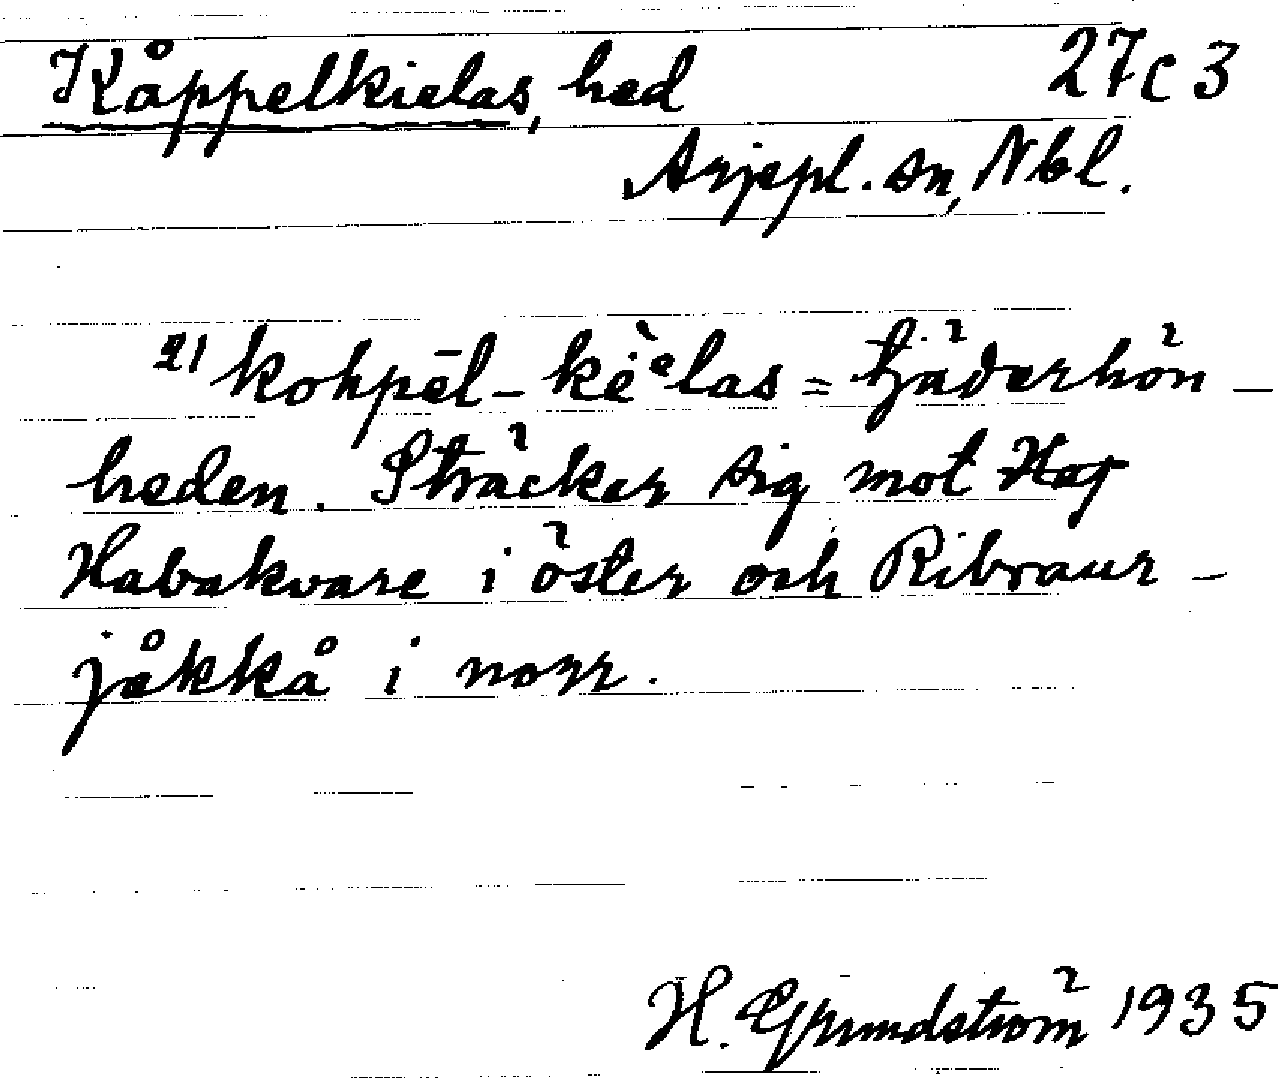 Kåppelkielas, hed 27C3
Arjepl. sn, Nbl.
21 kohpēl-kèelas = tjäderhön-
heden. Sträcker sig mot Hap
Habakvare i öster och Ribraur-
jåkkå i norr.
H. Grundström 1935